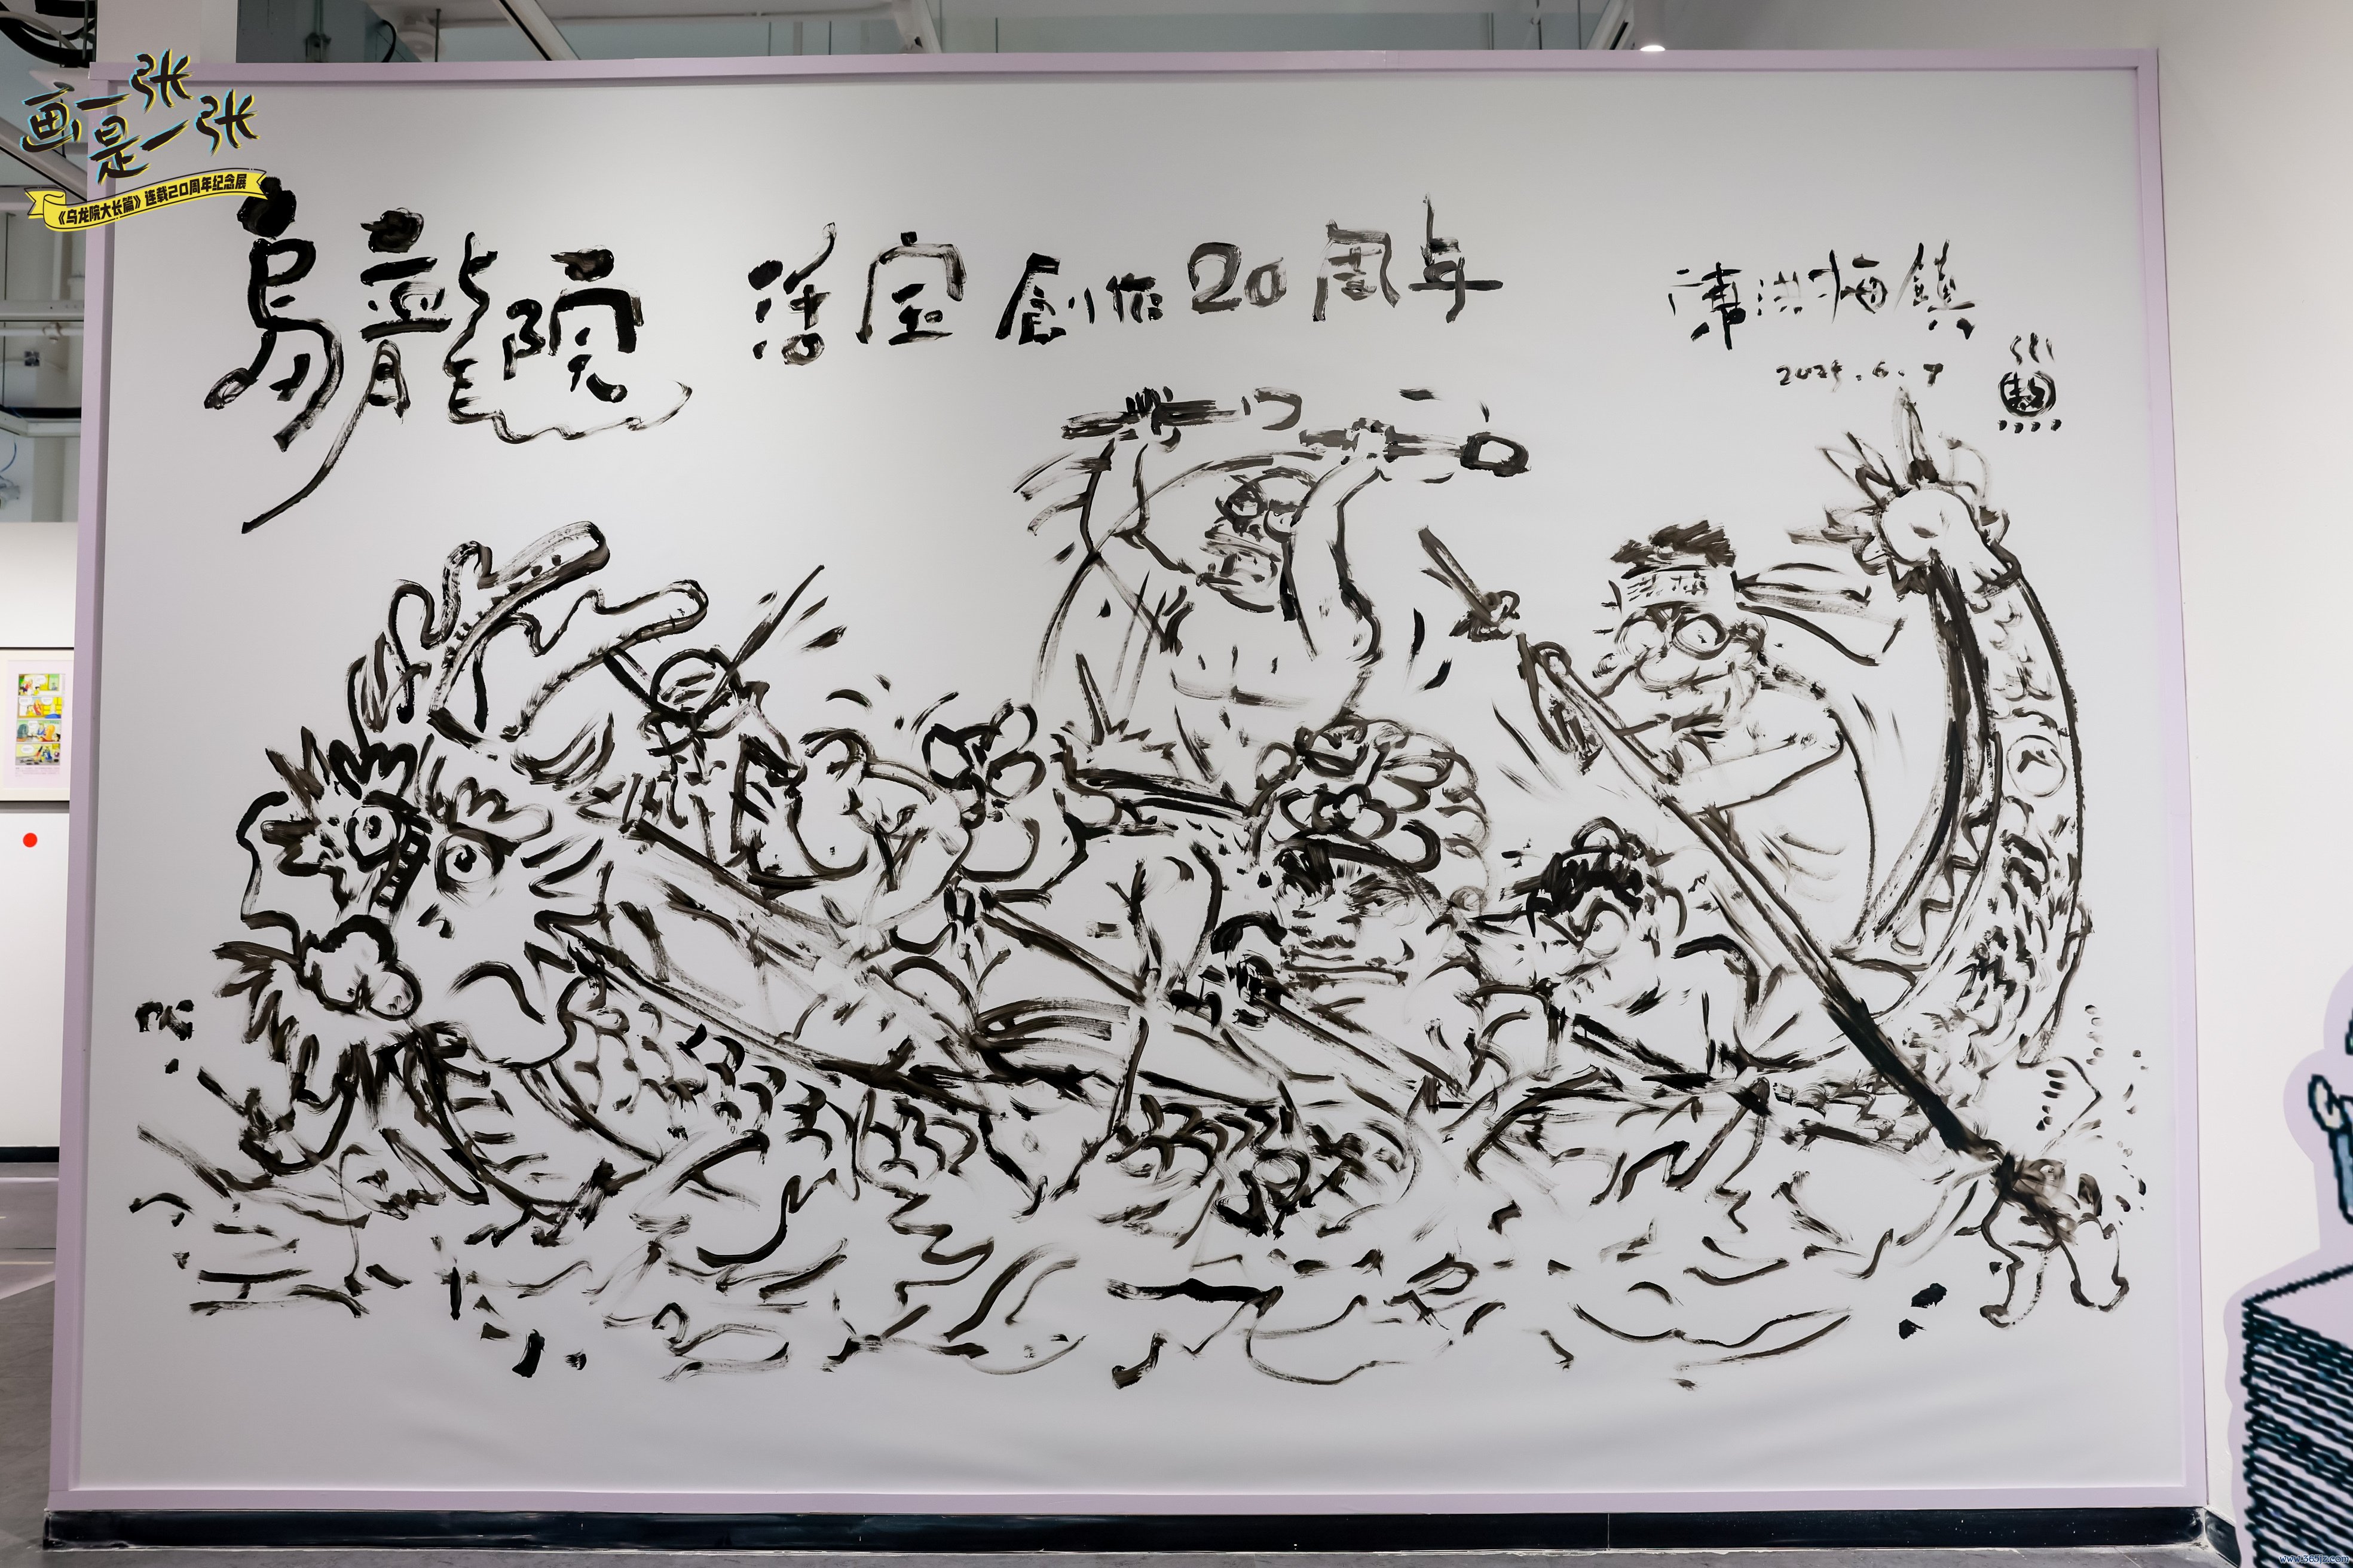 画一张
是一张
《乌龙院大长篇》连载20周年纪念展
烏龍院 活宝創作20周年
洪梅鎮
2024.6.7
洪梅